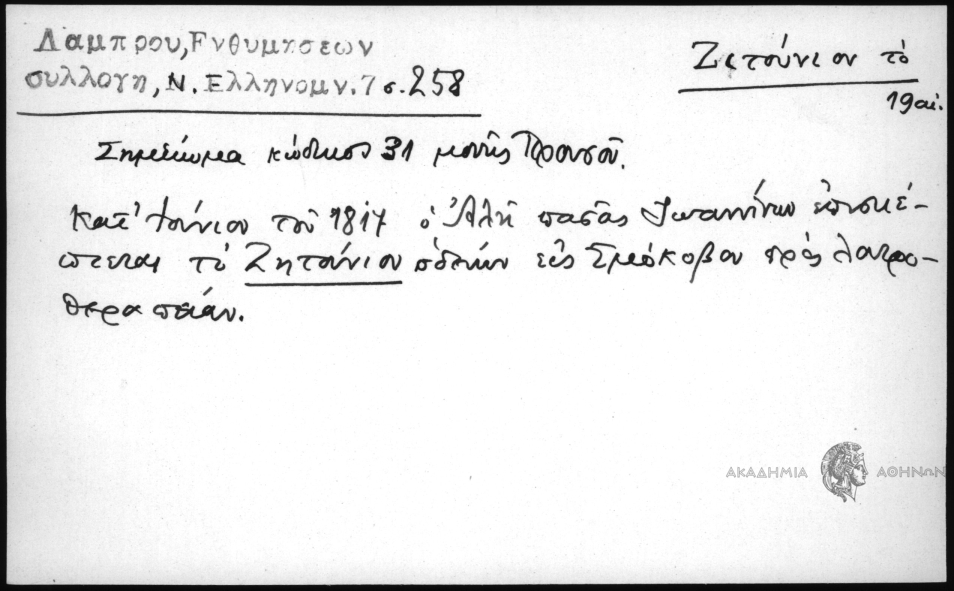 Λαμπρου, Ενθυμησεων
συλλογη, Ν. Ελληνομν. 7 σ. 258
Ζιτούνιον τό
19 αἰ.
Σημείωμα κώδικος 31 μονῆς Προυσοῦ.
Κατ' Ἰούνιον τοῦ 1817 ὁ Ἀλῆ πασᾶς Ἰωαννίνων ἐπισκέ-
πτεται τὸ Ζητούνιον ὁδεύων εἰς Σμόκοβον πρὸς λουτρο-
θεραπείαν.
ΑΚΑΔΗΜΙΑ ΑΘΗΝΩΝ